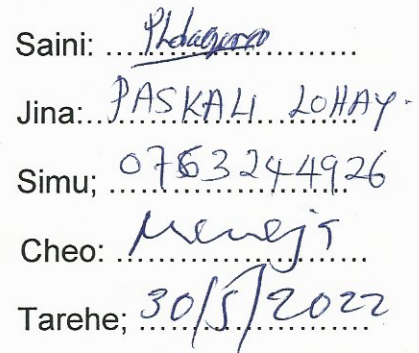 Saini: ........................
Jina: PASKALI LOHAY.
Simu; 0763244926
Cheo: Meneja
Tarehe; 30/5/2022